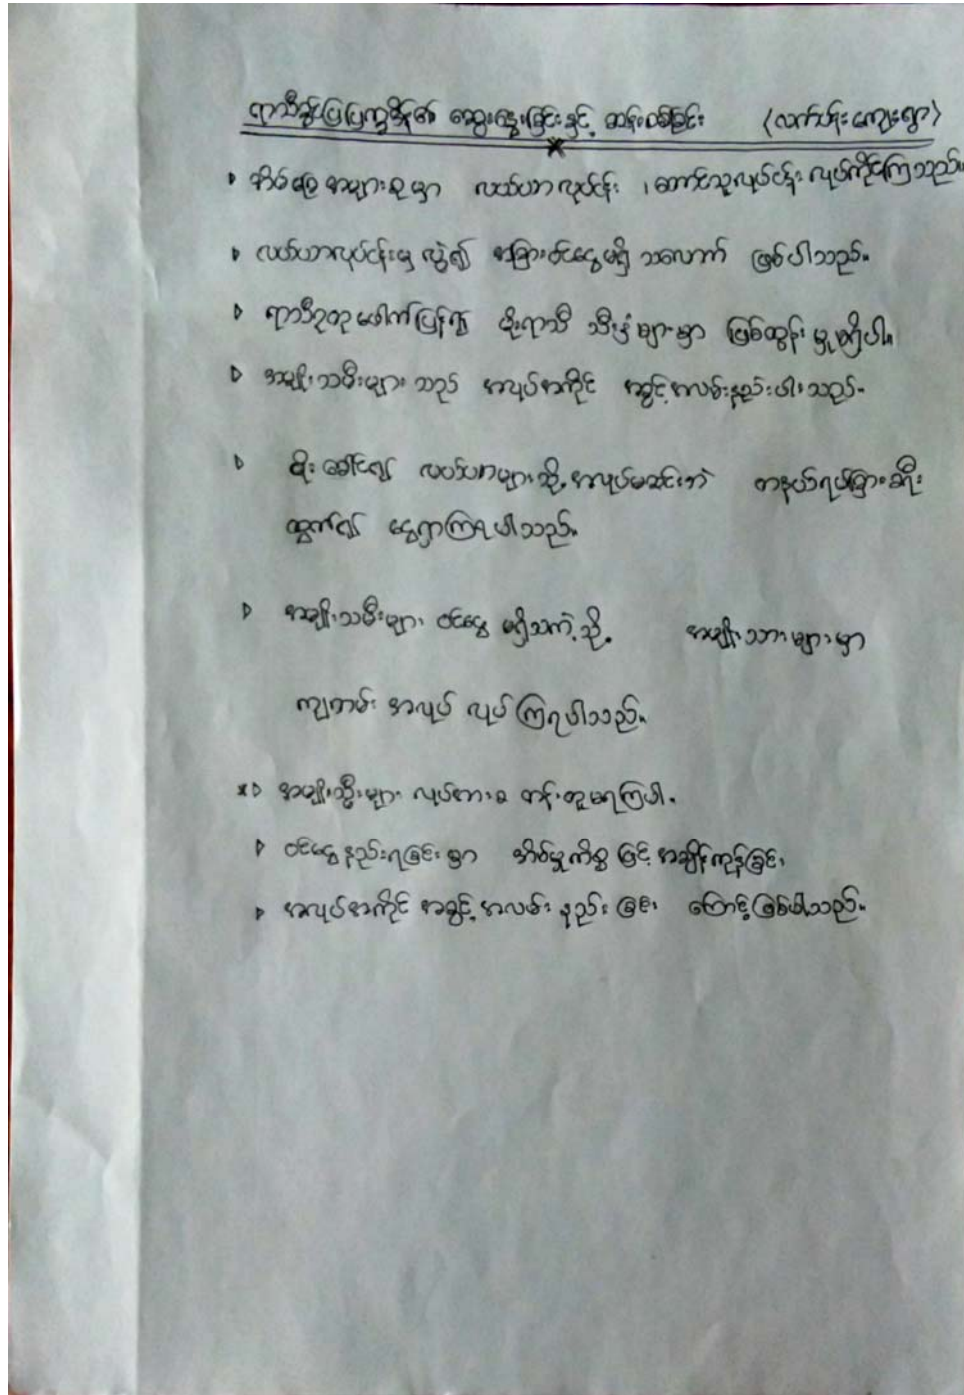 ရာသီခွင်ပြပြက္ခဒိန်၏ ဆွေးနွေးခြင်းနှင့် ဆန်းစစ်ခြင်း (လက်ပန်းကျေးရွာ)
အိမ်ခြေ အများစုမှာ လယ်ယာလုပ်ငန်း ၊ တောင်သူလုပ်ငန်း လုပ်ကိုင်ကြသည်။
လယ်ယာလုပ်ငန်းမှ လွဲ၍ အခြားဝင်ငွေမရှိ သလောက် ဖြစ်ပါသည်။
ရာသီဥတုဖေါက်ပြန်၍ မိုးရာသီ သီးနှံများမှာ ဖြစ်ထွန်း မှုမရှိပါ။
အမျိုးသမီးများ သည် အလုပ်အကိုင် အခွင့်အလမ်းနည်းပါးသည်။
မိုးခေါင်၍ လယ်ယာများသို့ အလုပ်မဆင်းဘဲ တနယ်ရပ်ခြားခရီး
ထွက်၍ ငွေရှာကြရပါသည်။
အမျိုးသမီးများ ဝင်ငွေ မရှိသကဲ့သို့ အမျိုးသားများမှာ
ကျဘမ်း အလုပ် လုပ်ကြရပါသည်။
အမျိုးသမီးများ လုပ်အားခ တန်းတူမရကြပါ။
ဝင်ငွေနည်းရခြင်းမှာ အိမ်မှုကိစ္စ ဖြင့် အချိန်ကုန်ခြင်း
အလုပ်အကိုင် အခွင့်အလမ်း နည်းခြင်း ကြောင့်ဖြစ်ပါသည်။